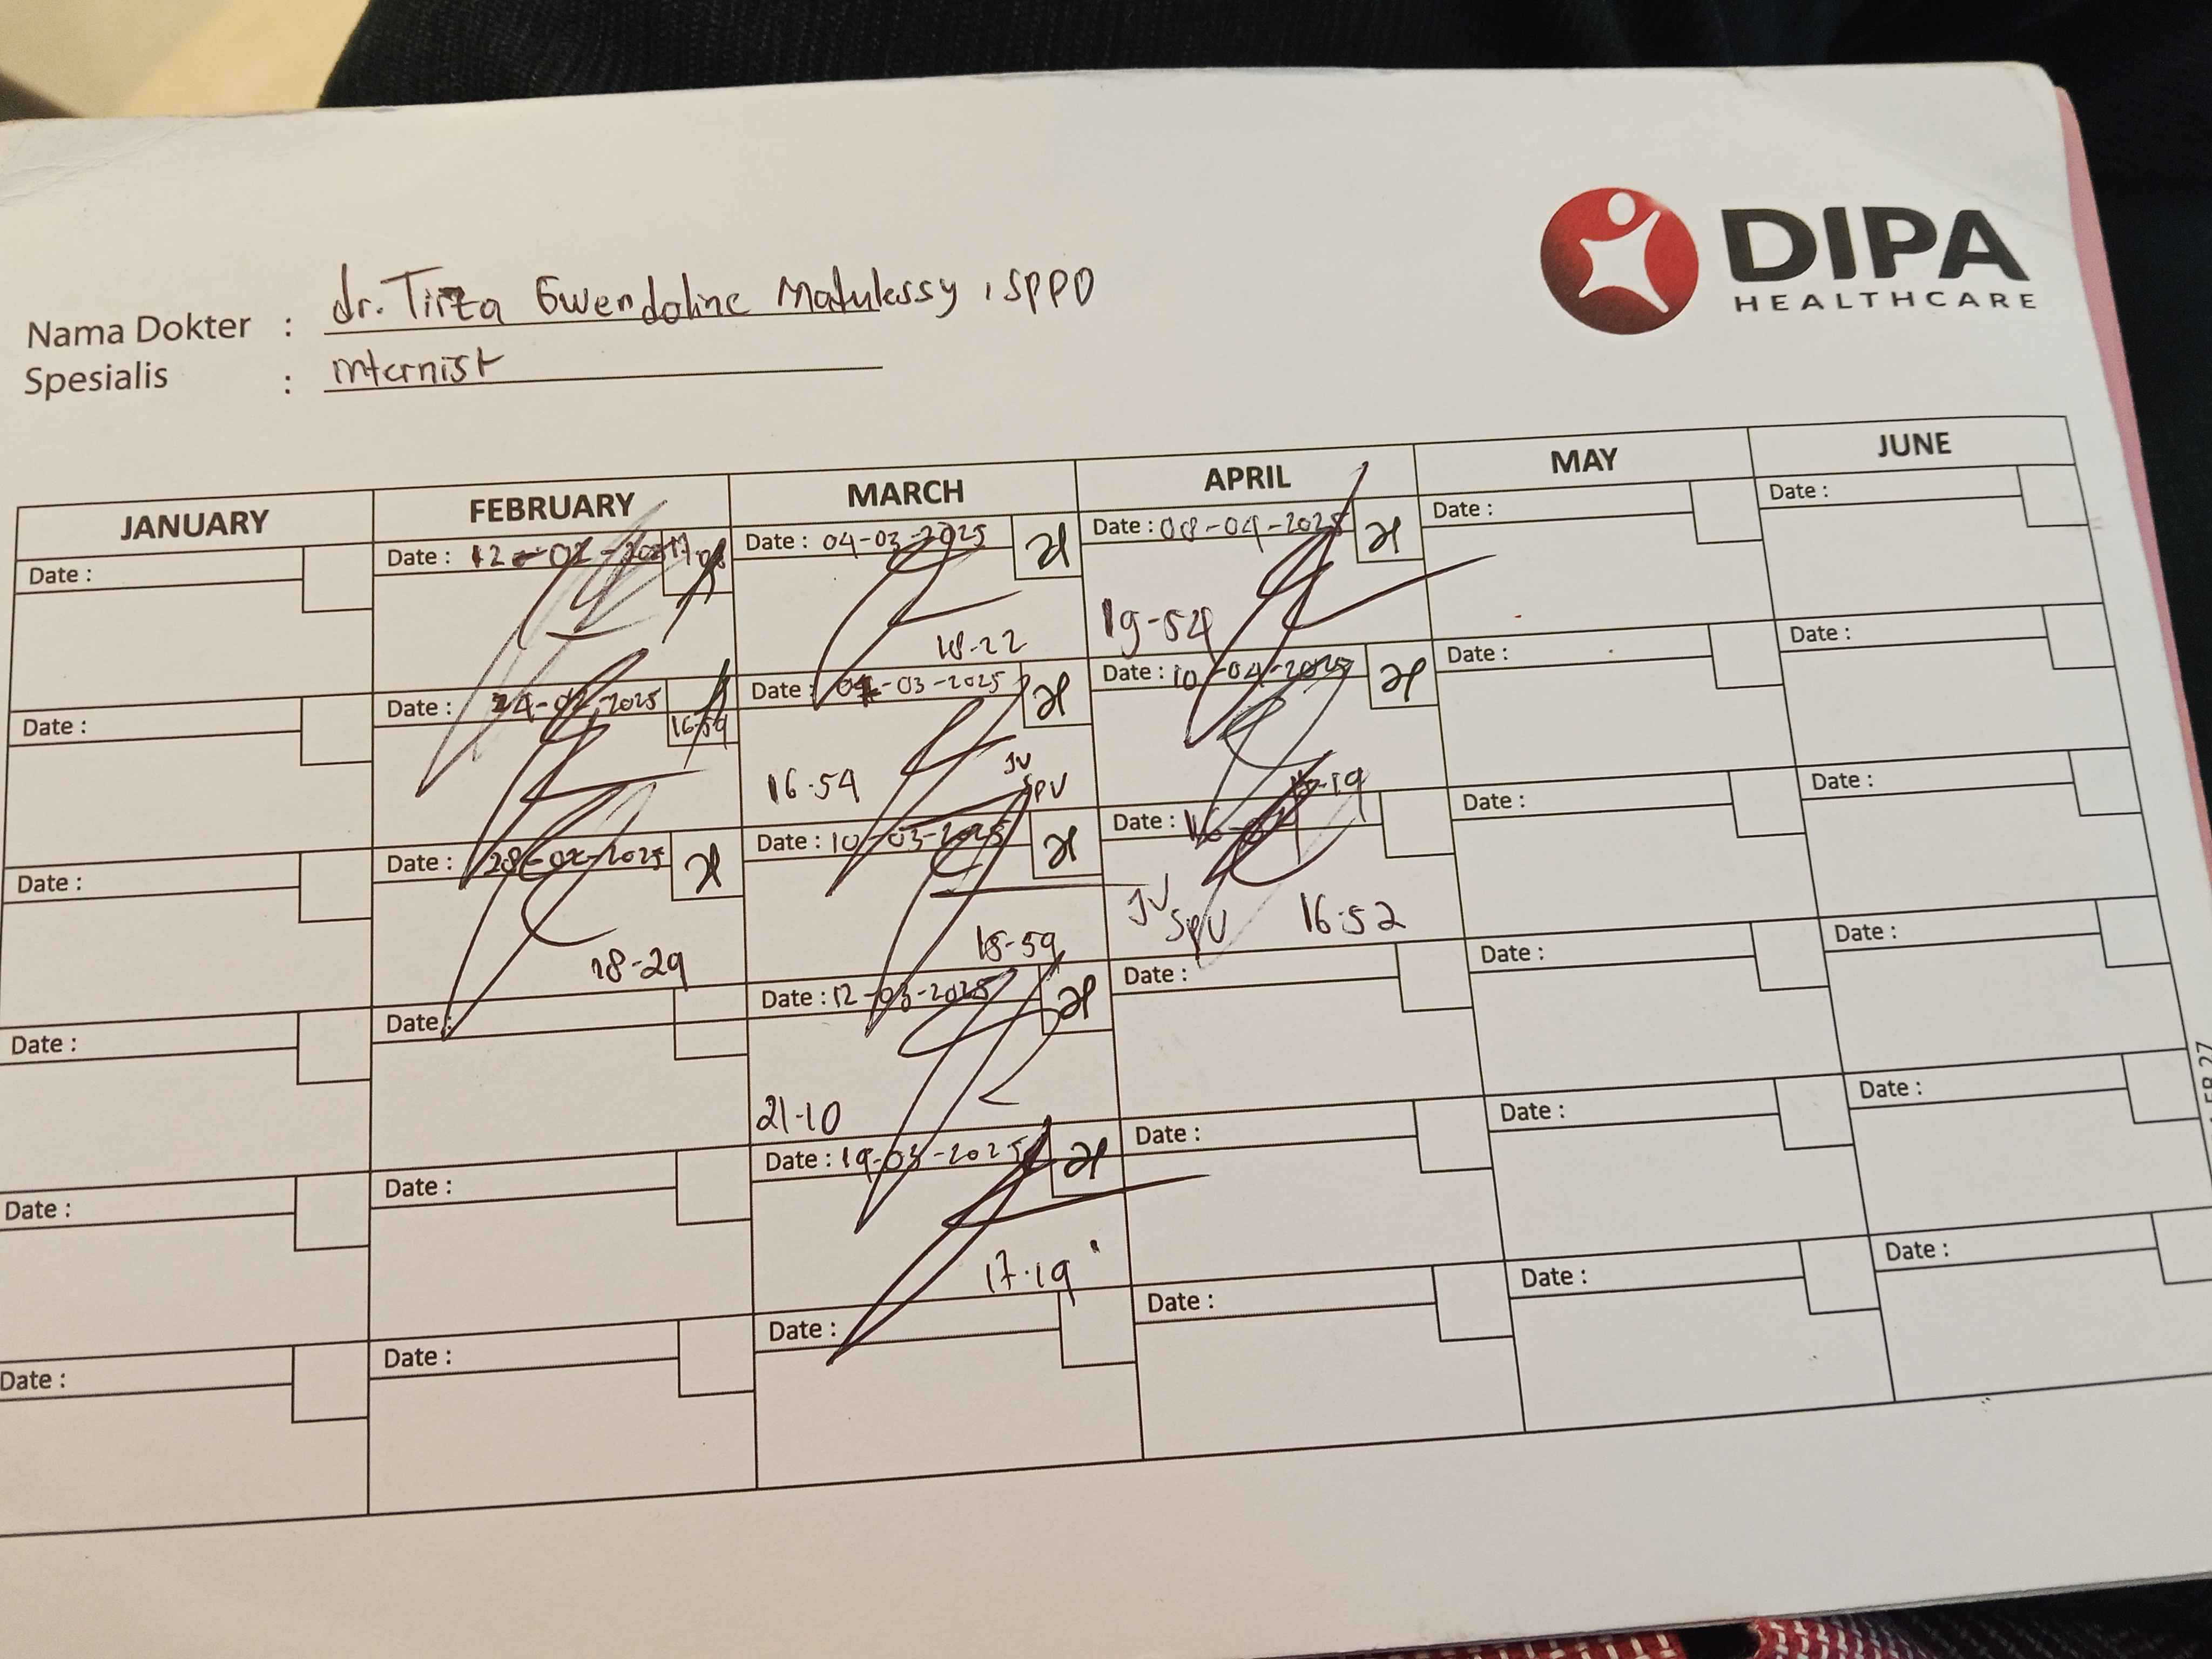 DIPA
HEALTHCARE
Nama Dokter : dr. Tirza Gwendoline Matulessy, SPPD
Spesialis : internist
JANUARY FEBRUARY MARCH APRIL MAY JUNE
Date : Date : 12-02- Date : 04-03-2025 Date : 08-04-2025 Date : Date :
18-22 19-54
Date : Date : 24-02-2025 16-59 Date : 07-03-2025 Date : 10-04-2025 Date : Date :
16-54 JV SPV -19
Date : Date : 28-02-2025 Date : 10-03-2025 Date : 16- Date : Date :
18-29 18-59 JV SPV 16-52
Date : Date : Date : 12-03-2025 Date : Date : Date :
21-10
Date : Date : Date : 19-03-2025 Date : Date : Date :
17-19
Date : Date : Date : Date : Date : Date :